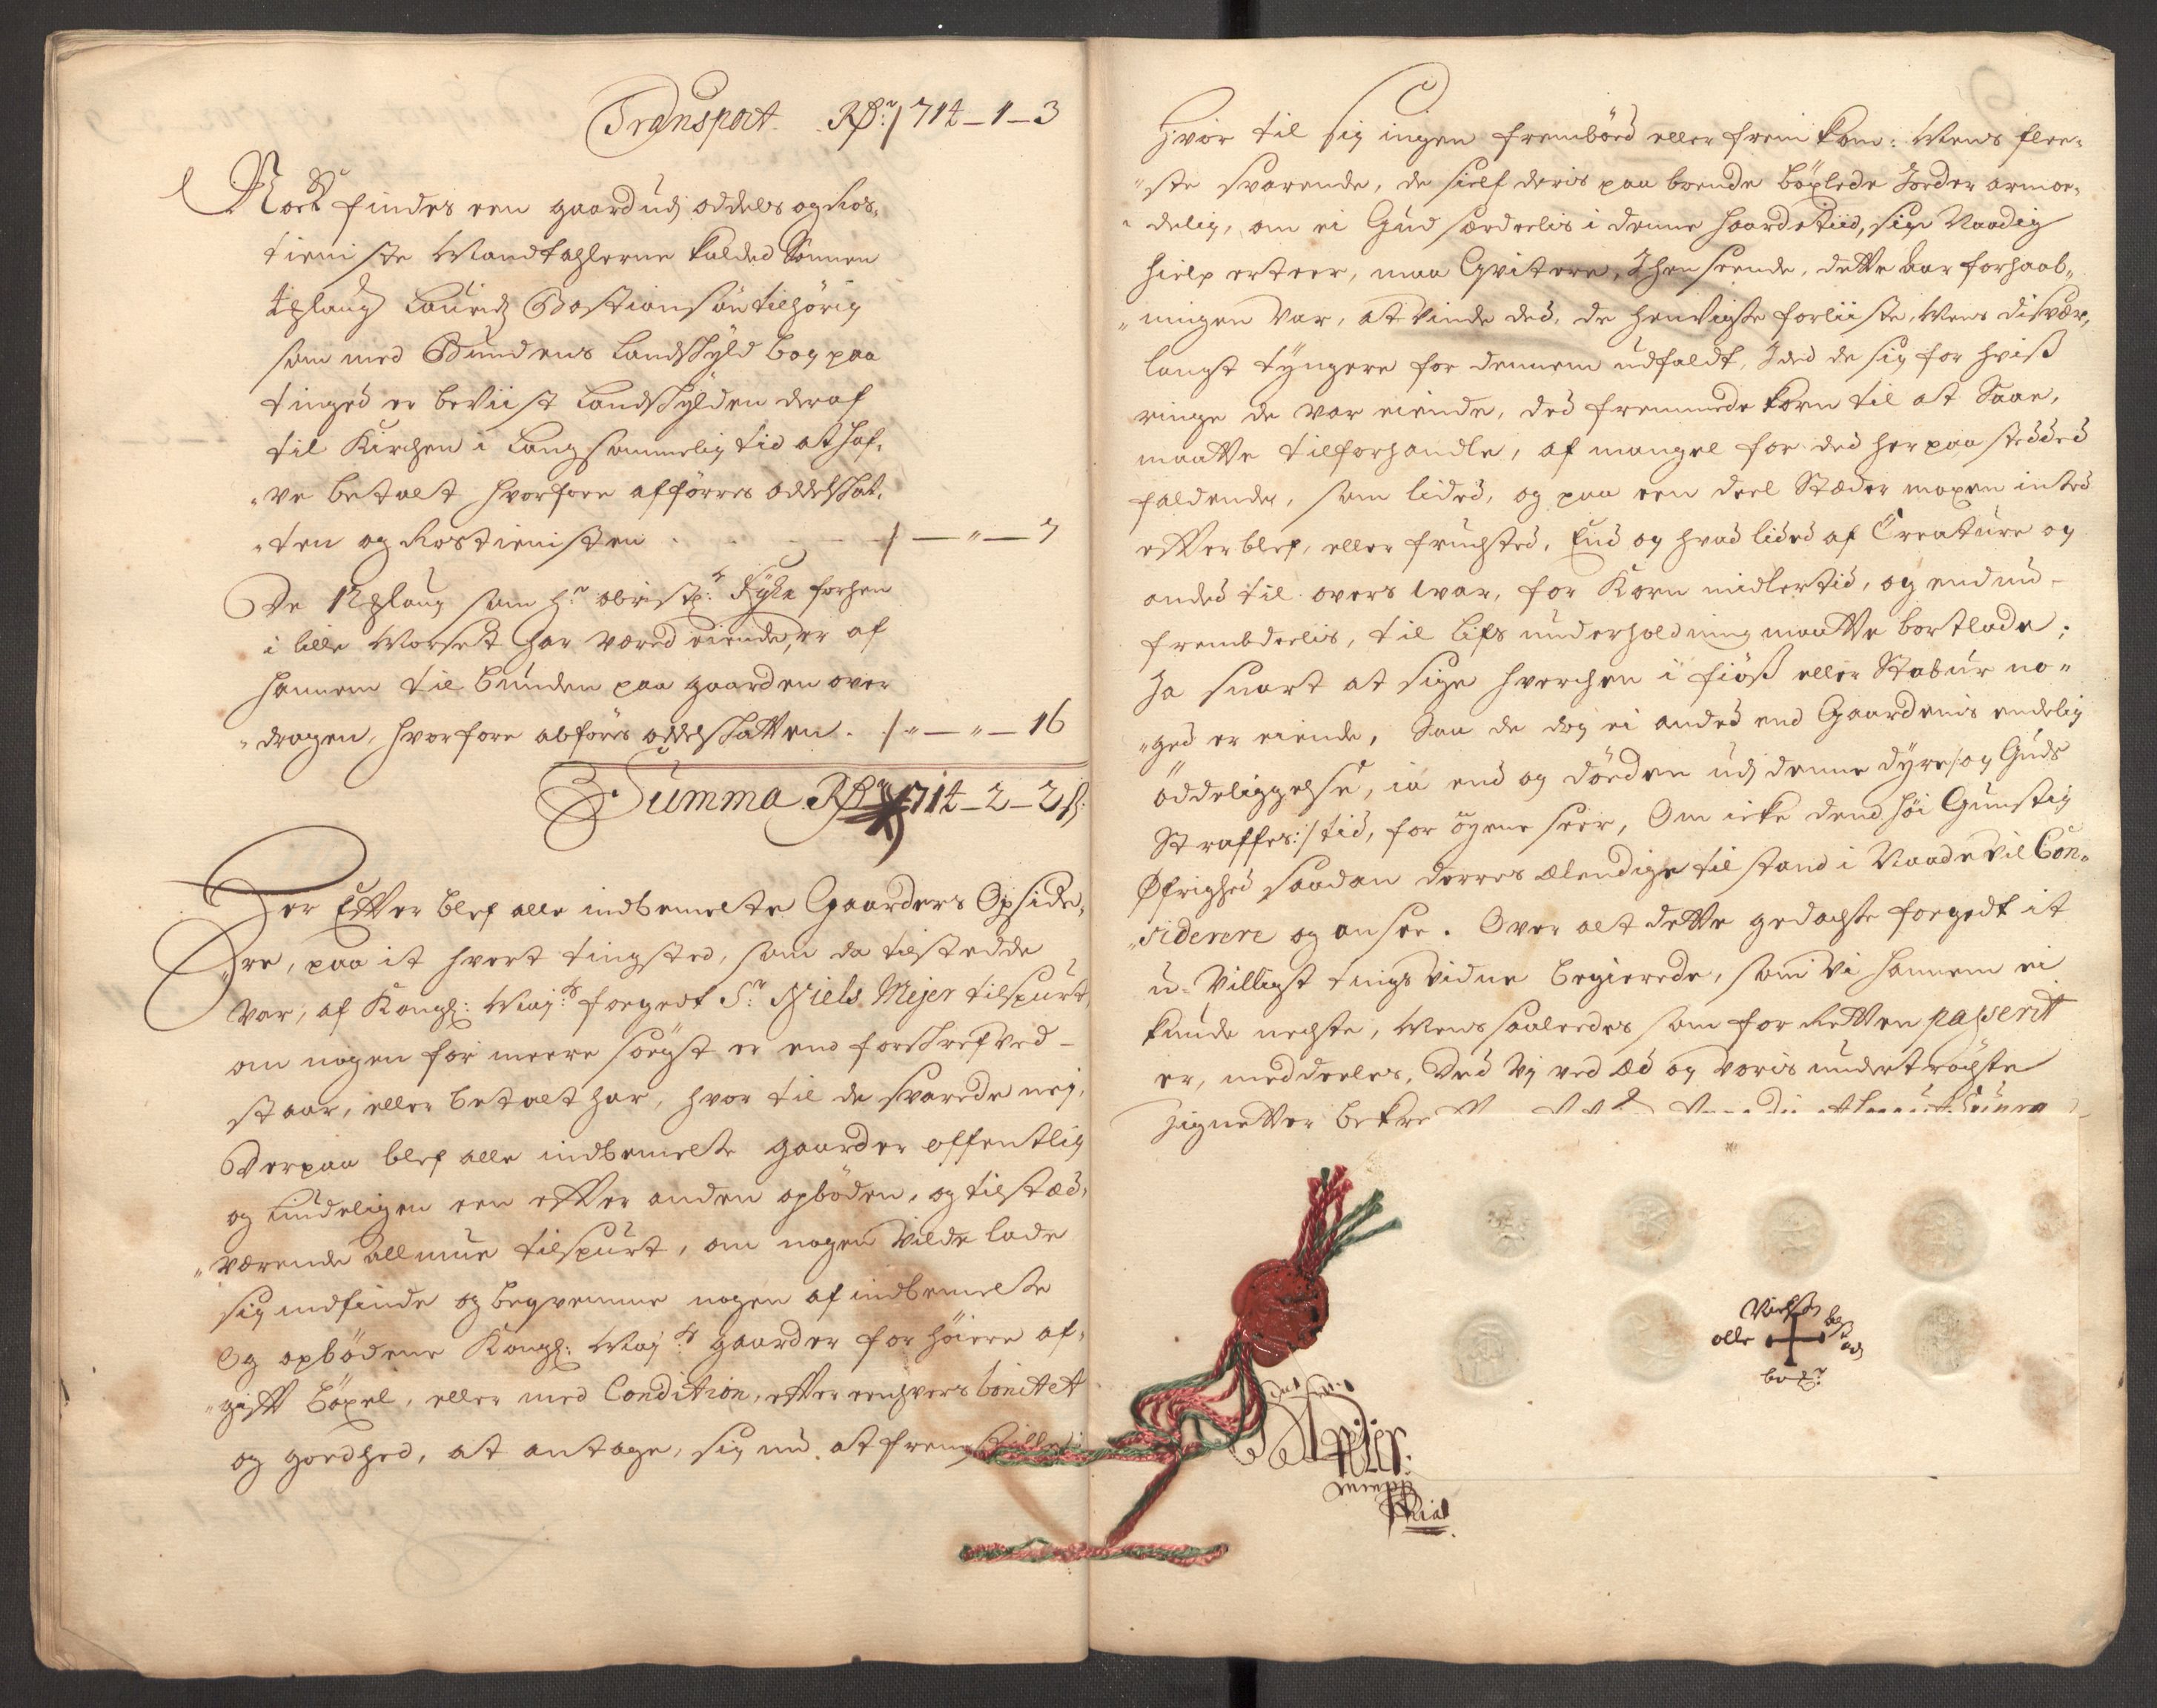 Transport. Rdr: 1714–1–3
Nock findes een gaard udj oddels og Ros,
tieniste Mandtahlerne kalded Sønnen
laug Lauridz Bastiansøn tilhørig
som med Bundens Landskyld bog paa
tinged er beviist Landskylden deraf
til Kirchen i Langsommelig tid at haf,
„ve betalt hvorfore afførres oddelskat,
„ten og Rostienisten . – 1 — „ — 7
De 12 laug som hr. obristl: forhen
i lille Morset har været eiende, er af
hannem til bunden paa gaarden over
„dragen, hvorfore abførs oddelskatten . 1 „ — „ — 16
Summa Rdr 1714–2–2 s:
Her Etter blef alle indbemelte Gaarders Opside,
„re, paa it hvert tingsted, som da tilstedde
var, af Kongl: Maj:ts foegedt Sr. Niels Mejer tilspurt,
om nogen for meere søgt er end forskrefved –
staar, eller betalt har, hvor til de svarede nej,
Derpaa blef alle indbemelte gaarder offentlig
og lindeligen een etter anden opbøden, og tilstæd,
„værende allmue tilspurt, om nogen vilde lade
sig indfinde og beqvemme nogen af indbemelte
og opbødene Kongl: Maj:ts gaarder for høiere af,
„gift böxel, eller med Condition, etter eenhvers bonitet
og goedhed, at antage, sig nu at fremstille;
Hvor til sig ingen frembød eller frem kom: Mens flee,
„ste svarende, de sielf deris paa boende böxlede Jorder armoe,
„delig, om ei Gud særdeelis i denne haarde tiid, sin Naadig
hielp erteer, maa Qvitere, Ihenseende, dette aar forhaab„
„ningen var, at vinde ded, de henvigte forliiste, Mens disvær,
langt tyngere for dennem udfaldt, Ided de sig for hviss
ringe de var eiende, ded fremmede korn til at Saae,
maatte tilforhandle, af mangel for ded her paa stedded
faldende, som lided, og paa een deel Stæder moxen inted
etterblef, eller fruchted, End og hvad lided af Creature og
anded til overs war, for Korn midlertid, og endnu –
frembdeelis, til lifs underholdning maatte bortlade;
Ja snart at sige hverchen i fiøss eller Stabur no„
„ged er eiende, Saa de dog ei anded end Gaardenis endelig
öddeliggelse, ia end og döeden udj denne dyre /: og Guds
Straffes :/ tid, for øgene seer, Om icke dend høi Gunstig
Øfrighed saadan derres ælendige tilstand i Naade vil Con„
„siderere og ansee. Over alt dette gedachte foegedt it
u-villigt tings vidne begierede, som vi hannem ei
kunde nechte, Mens saaledes som for Retten passerit
er, meddeeles, Ded vj ved æd og voris undertröchte
Zignetter bekre
olle
Mejer:
mepp